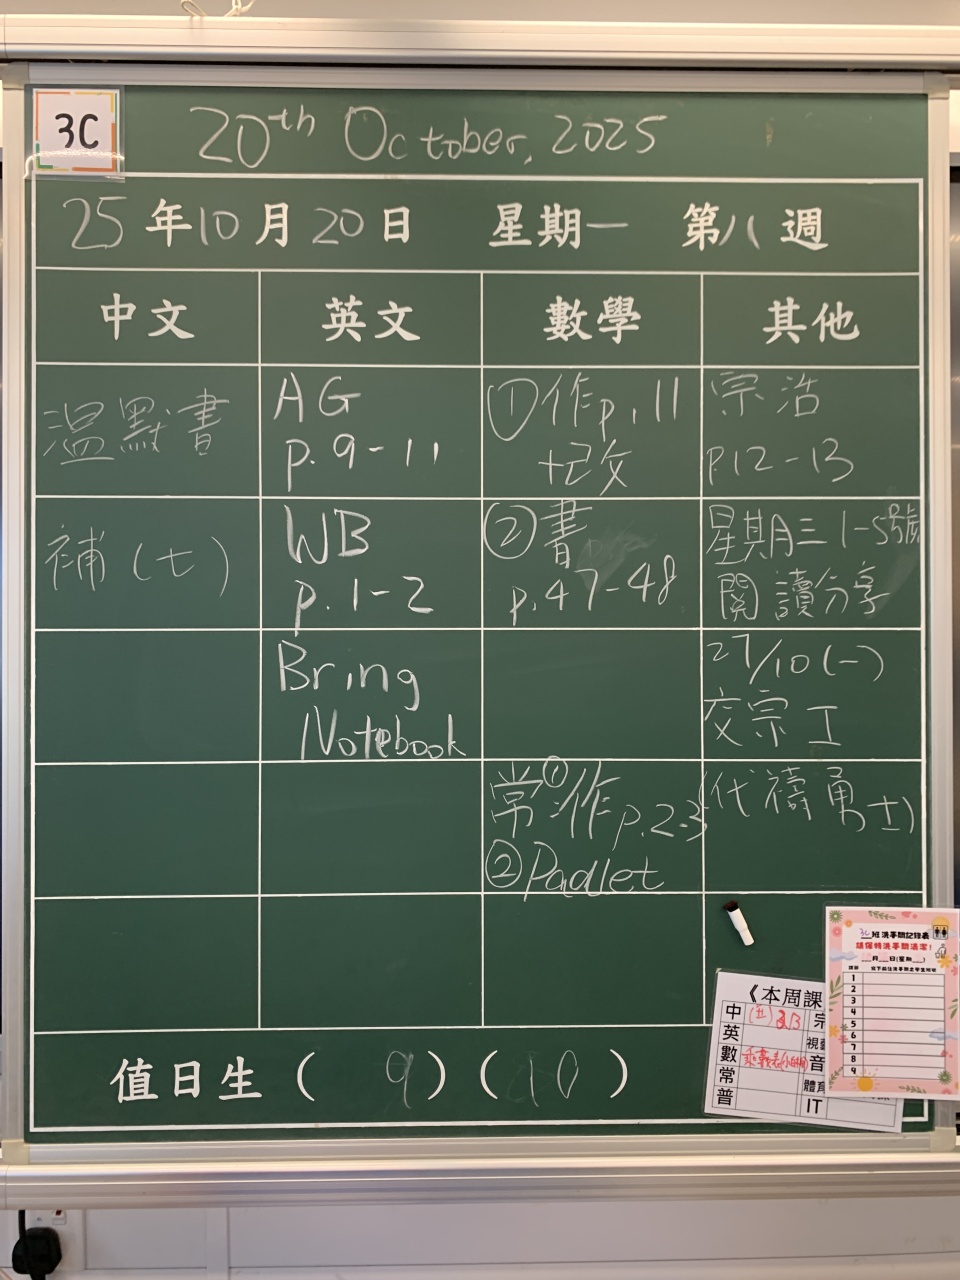 3C
20th October, 2025
25年10月20日 星期一 第八週
中文 英文 數學 其他
溫默書
AG
p.9-11
①作p.11
+改
宗浩
P.12-13
補(七)
WB
p.1-2
②書
p.47-48
星期三 1-5號
閱讀分享
Bring
Notebook
27/10(一)
交宗工
常①作p.2-3
②Padlet
(代禱勇士)
值日生( 9 )( 10 )
《本周課
中
英
數
常
普
宗
音
體育
IT
3C班洗手間記錄表
請保持洗手間清潔!
月 日(星期 )
1
2
3
4
5
6
7
8
9